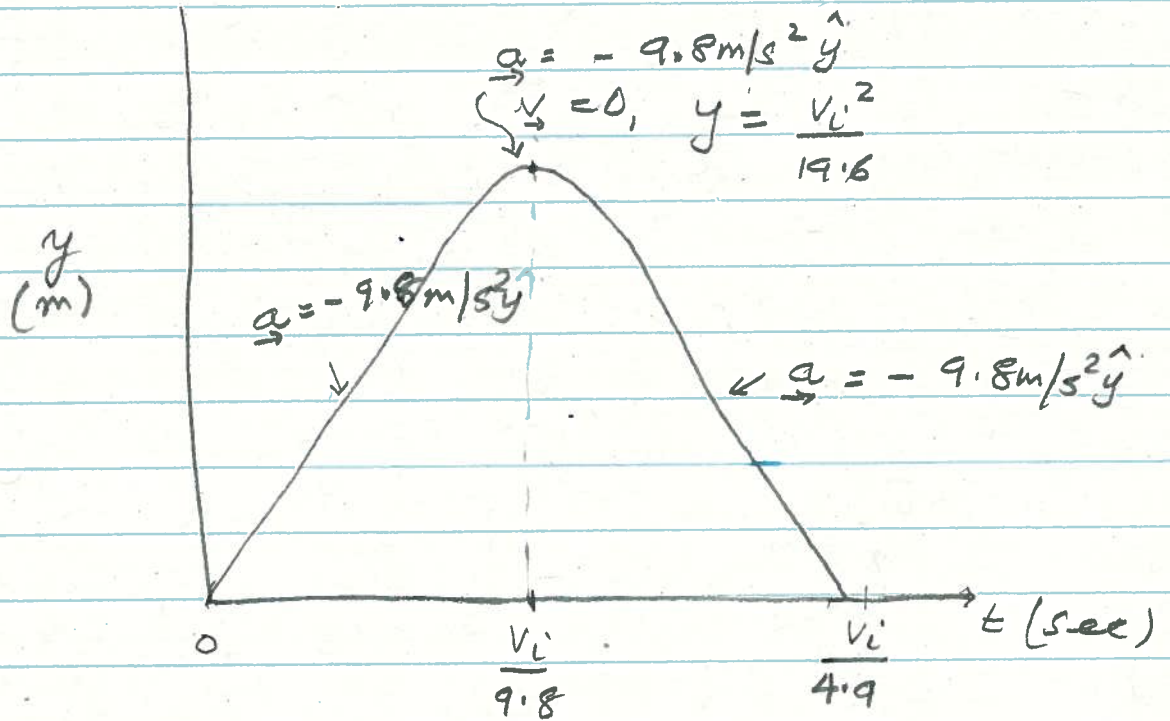 a = - 9.8m/s² ŷ
v = 0, y = vᵢ²/19.6
y
(m)
a = - 9.8m/s² ŷ
a = - 9.8m/s² ŷ
0
vᵢ/9.8
vᵢ/4.9
t (sec)